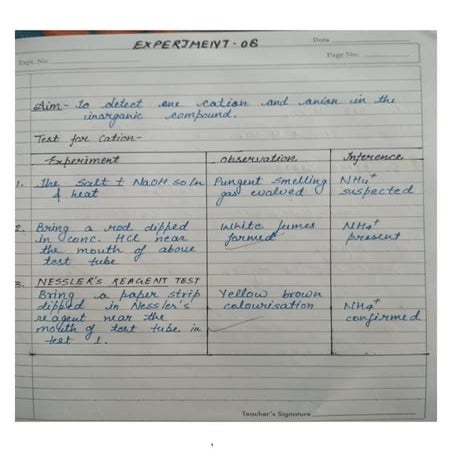 EXPERIMENT-08
Date
Page No.
Expt. No.
Aim - To detect one cation and anion in the
inorganic compound.
Test for Cation-
Experiment Observation Inference
1. The salt + NaOH soln Pungent smelling NH4+
& heat gas evolved suspected
2. Bring a rod dipped White fumes NH4+
in conc. HCl near formed present
the mouth of above
test tube
3. NESSLER'S REAGENT TEST
Bring a paper strip Yellow brown NH4+
dipped in Nessler's colourisation confirmed
reagent near the
mouth of test tube in
test 1.
Teacher's Signature